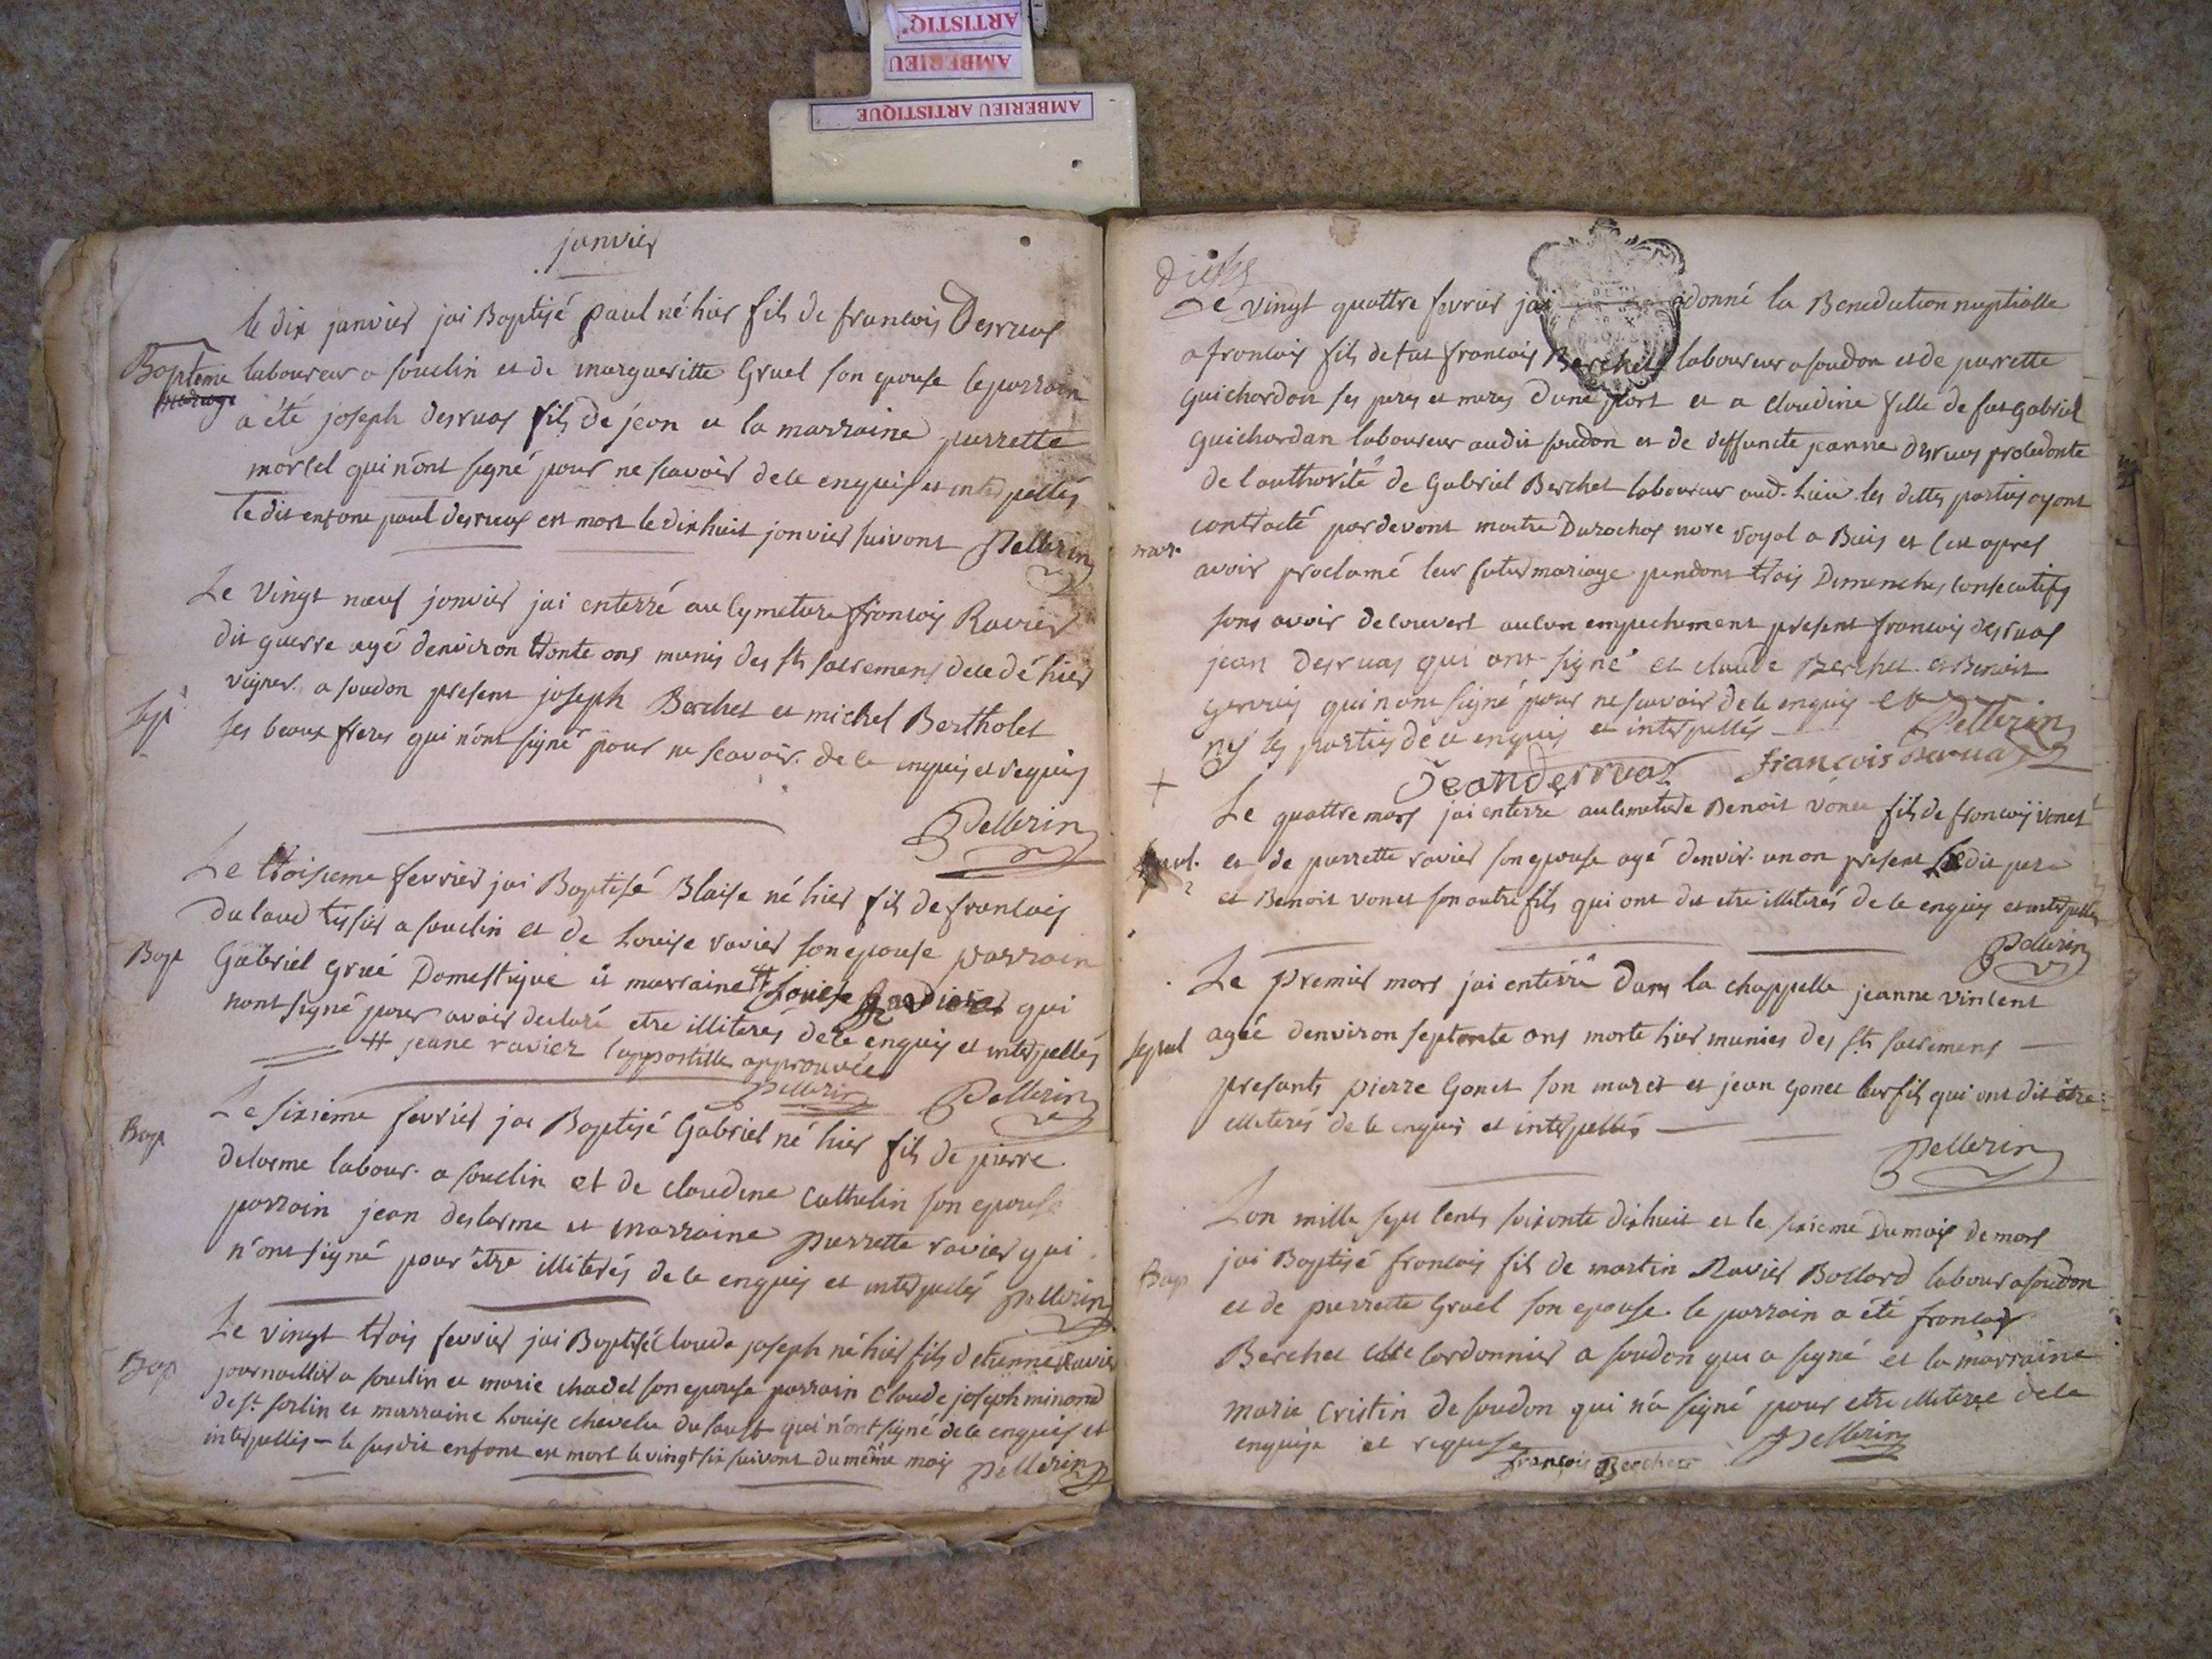 ARTISTIQ
AMBERIEU
AMBERIEU ARTISTIQUE
janvier
le dix janvier jai Baptisé paul né hier fils de francois Desruas
Bapteme
mariage
laboureur a souclin et de margueritte Gruel son epouse le parrain
a été joseph desruas fils de jean et la marraine pierrette
morcel qui n'ont signé pour ne scavoir de ce enquis et interpellés
le dit enfant paul desruas est mort le dixhuit janvier suivant Pellerin
Le vingt neuf janvier jai enterré au cymetiere francois Ravier
dit guerre agé denviron trente ans munis des sts sacremens decedé hier
vigner. a soudon present joseph Berchet et michel Bertholet
sep
ses beaux freres qui n'ont signé pour ne scavoir. de ce enquis et requis
Pellerin
Le troisieme fevrier jai Baptisé Blaise né hier fils de francois
tissier a souclin et de Louise ravier son epouse parrain
Bap
Gabriel grué Domestique et marraine # Louise qui
nont signé pour avoir declaré etre illiterés de ce enquis et interpellés
# jeane ravier l'appostille approuvée
Pellerin Pellerin
Le sixieme fevrier jai Baptisé Gabriel né hier fils de pierre
Bap
delorme labour. a souclin et de claudine Cathelin son epouse
parrain jean deslorme et marraine pierrette ravier qui
n'ont signé pour être illiterés de ce enquis et interpellés Pellerin
Le vingt trois fevrier jai Baptisé Claude joseph né hier fils detienne Ravier
Bap
journallier a souclin et marie chadel son epouse parrain Claude joseph minand
de st sorlin et marraine Louise chevelu du sault qui n'ont signé de ce enquis et
interpellés - le susdit enfant est mort le vingt six suivant du même mois Pellerin
Le vingt quattre fevrier jai donné la Benediction nuptialle
a francois fils de fut francois Berchet laboureur a soudon et de pierrette
guichardan ses peres et meres d'une part et a claudine fille de fut gabriel
guichardan laboureur audit soudon et de deffuncte jeanne desruas procedante
de l'authorité de Gabriel Berchet laboureur aud. Lieu les dittes parties ayant
contracté pardevant maitre Durochas nore royal a et ce apres
mar.
avoir proclamé leur futur mariage pendant trois Dimenches consecutifs
sans avoir decouvert aucun empechement present francois desruas
jean desruas qui ont signé et claude Berchet et Benoit
gervais qui n'ont signé pour ne scavoir de ce enquis et
ny les parties de ce enquis et interpellés Pellerin
Jean Derruas françois Derruas
+
Le quattre mars jai enterré au cimetiere Benoit vonet fils de francois vonet
et de pierrette ravier son epouse agé denvir. un an present Ledit pere
et Benoit vonet son autre fils qui ont dit etre illiterés de ce enquis et interpellés
Pellerin
Le premier mars jai enterré dans la chappelle jeanne vincent
sepul
agée denviron septante ans morte hier munies des sts sacremens
presants pierre Gonet son maret et jean gonet leur fils qui ont dit etre
illiterés de ce enquis et interpellés
Pellerin
Lan mille sept cents soixante dixhuit et le sixieme du mois de mars
jai Baptisé francois fils de martin Ravier Bollard labour a soudon
Bap
et de pierrette Gruel son epouse. le parrain a été francois
Berchet cordonnier a soudon qui a signé et la marraine
marie Cristin de soudon qui n'a signé pour etre illiteree de ce
enquise et requise Pellerin
françois Berchet